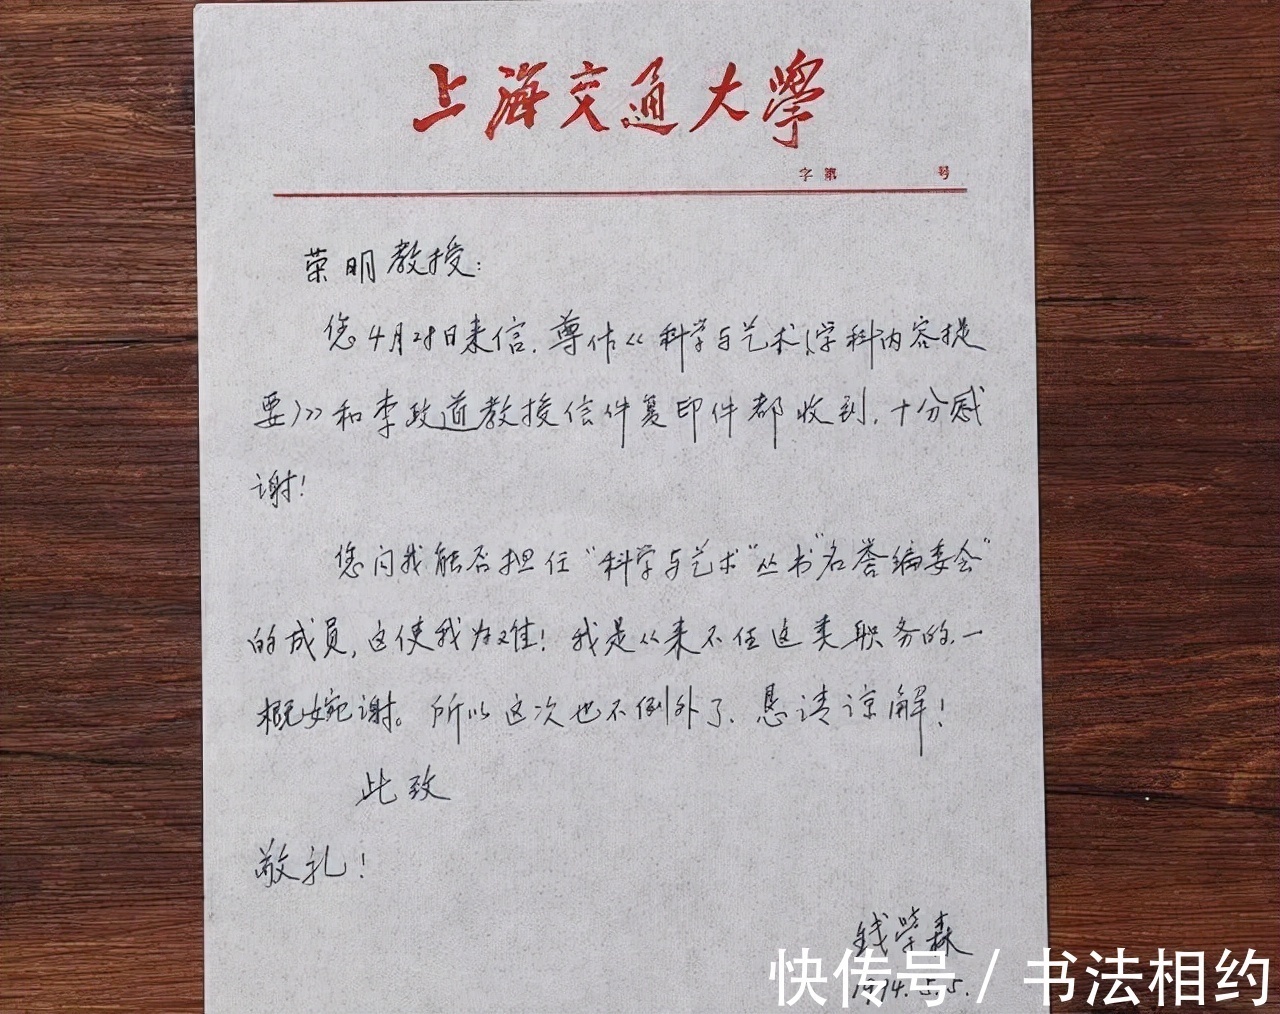 上海交通大學
字第 号
荣明教授:
您4月28日来信,尊作《科学与艺术(学科内容提
要)》和李政道教授信件复印件都收到,十分感
谢!
您问我能否担任“科学与艺术”丛书“名誉编委会”
的成员,这使我为难!我是从来不任这类职务的,一
概婉谢。所以这次也不例外了,恳请谅解!
此致
敬礼!
钱学森
1994.5.5.
快传号/书法相约